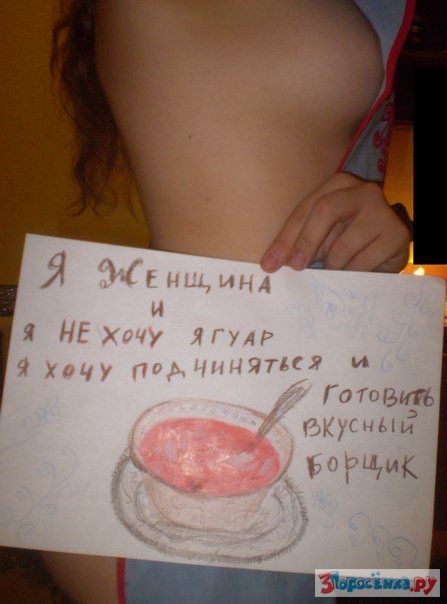 Я ЖЕНЩИНА
И
Я НЕ ХОЧУ ЯГУАР
Я ХОЧУ ПОДЧИНЯТЬСЯ И
ГОТОВИТЬ
ВКУСНЫЙ
БОРЩИК
3Поросёнка.ру